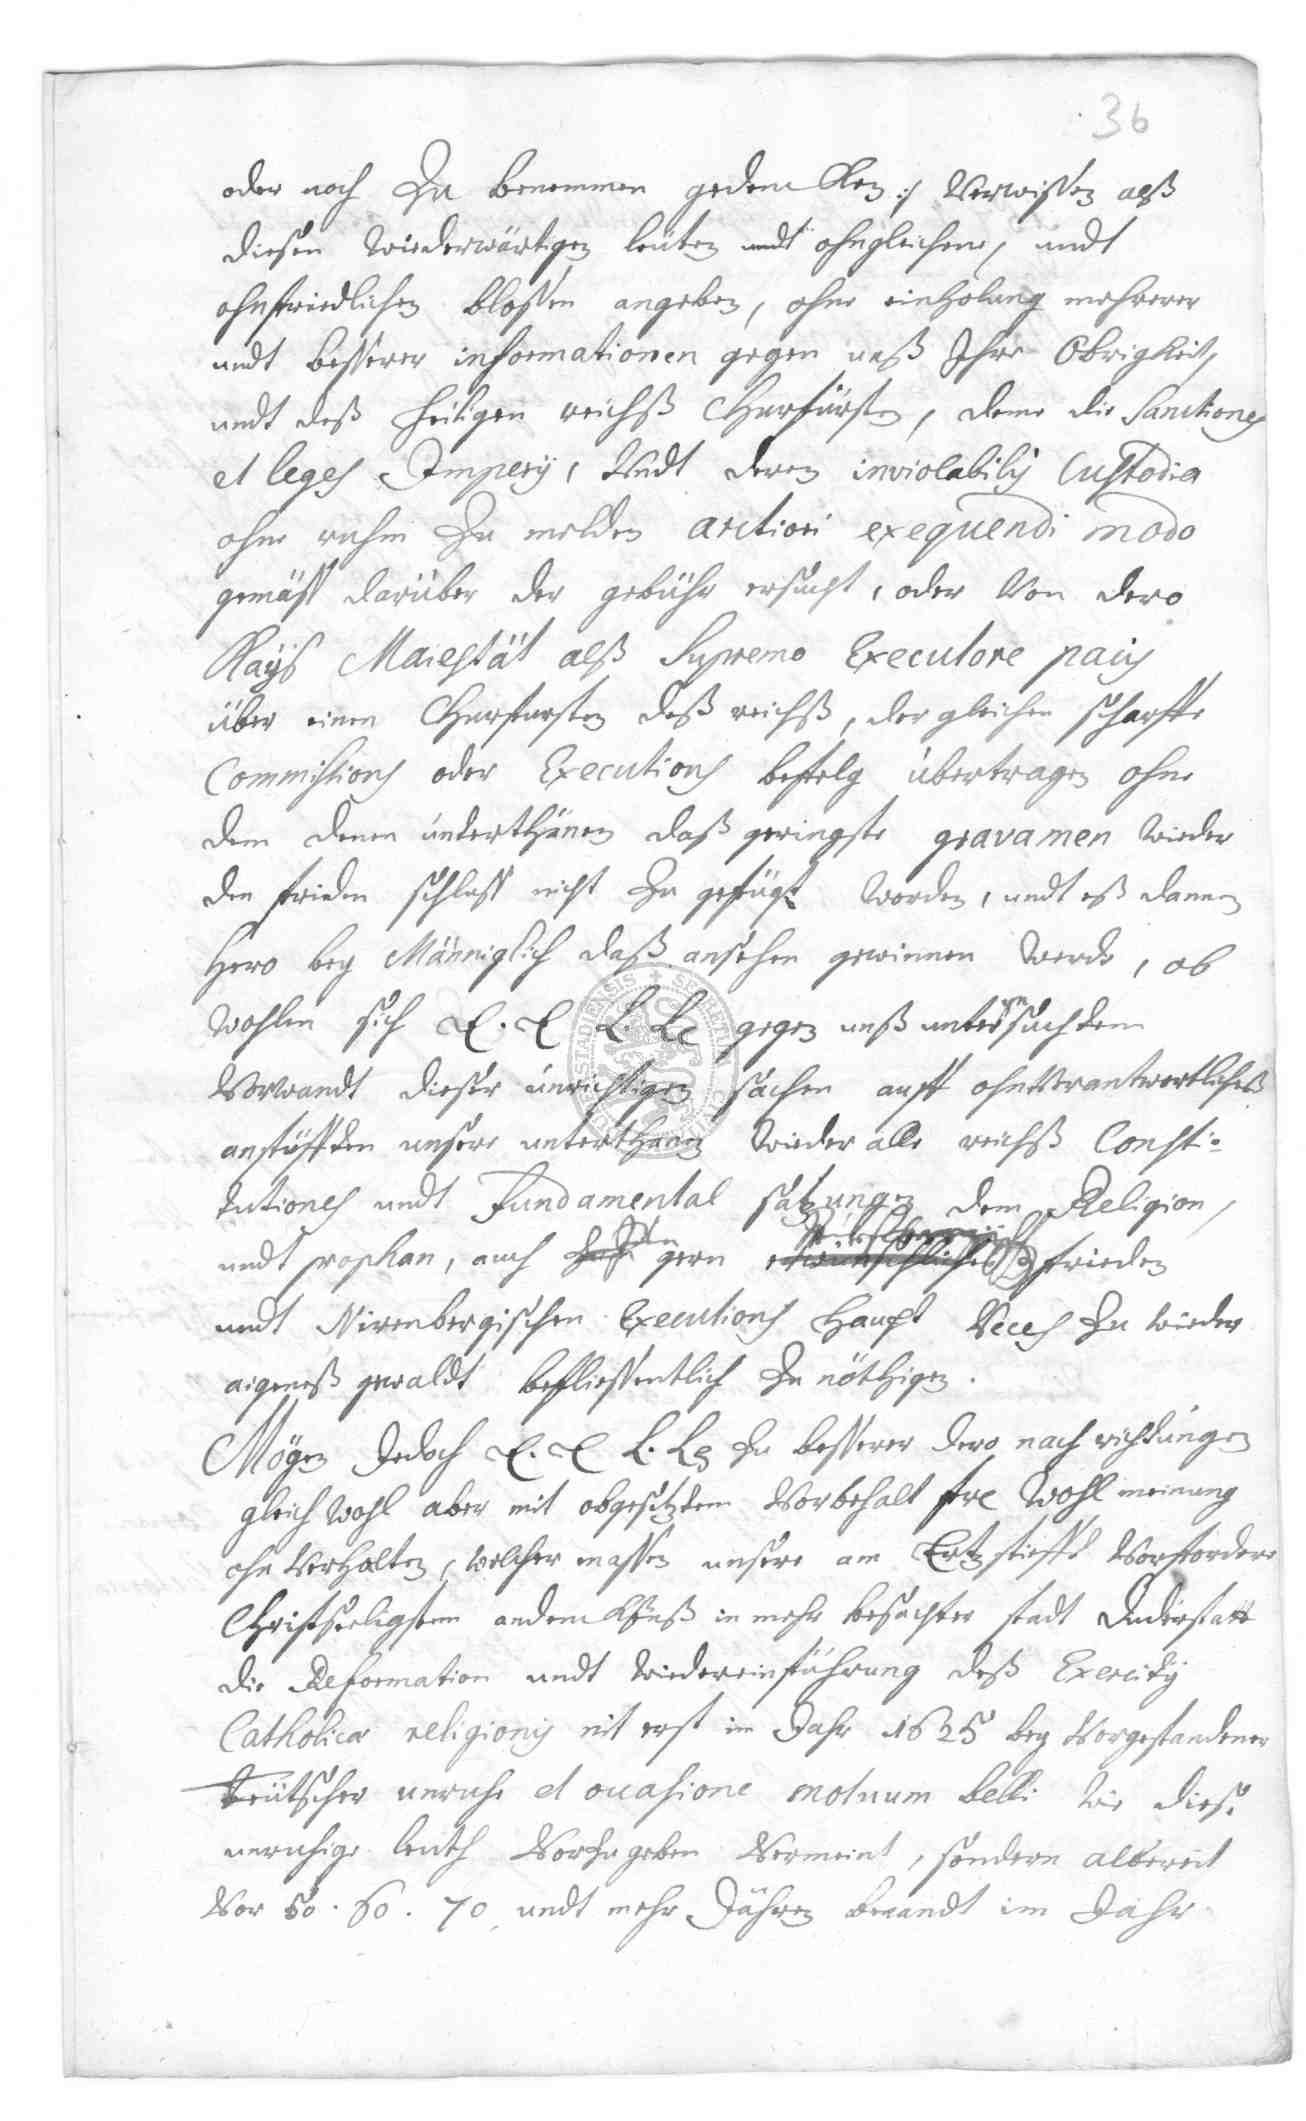 36
oder noch Zu benemmen gedencken :/ Verwissen alß
diesen wiederwärtigen leüten undt ohngleichem, undt
ohnfriedlichen blossen angeben, ohne einholung mehrerer
undt besserer informationen gegen unß Ihre Obrigkeit,
undt deß heiligen reichß Churfürsten, deme die Sanctiones
et leges Imperÿ, Undt deren inviolabilis Custodia
ohne ruhm Zu melden arctiori exequendi modo
gemäß darüber der gebühr ersucht, oder Von dero
Kaÿß Maiestät alß Supremo Executore pacis
über einen Churfursten deß reichß, der gleichen scharffe
Commissions oder Executions befelg übertragen ohne
dem denen únterthänen daß geringste gravamen wieder
den frieden schluß nicht Zu gefügt worden, undt eß dannen
hero beÿ Männiglich daß ansehen gewinnen werde, ob
wohlen sich E. E L. L. gegen unß untersuchtem
Vorwandt dieser únrichtigen sachen auff ohnverantwortliches
anstifften unsere unterthanen wieder alle reichß Consti-
tutiones undt Fundamental satzungen dem Religion,
undt prophan, auch gern frieden
undt Nirenbergischen Executions Haupt Reces Zu wieder
aigeneß gewaldt beflissentlich Zu nöthigen.
Mögen Jedoch E. E L. L. Zu besserer dero nachrichtúngen
gleich wohl aber mit obgesetztem Vorbehalt fre wohlmeinung
ohn verhalten, welcher massen unsere am Ertzstifft Vorfordere
Christseeligsten andenckhenß in mehr besachter stadt Duderstatt
die Reformation undt wiedereinführung deß Exercitÿ
Catholicæ religionis nit erst im Jahr 1625 beÿ Vorgestandener
teütscher unruhe et occasione motuum belli wie diese
unruhige leüth Vorzugeben Vermeint, sondern albereit
Vor 50. 60. 70 undt mehr Jähren benandt im Jahr